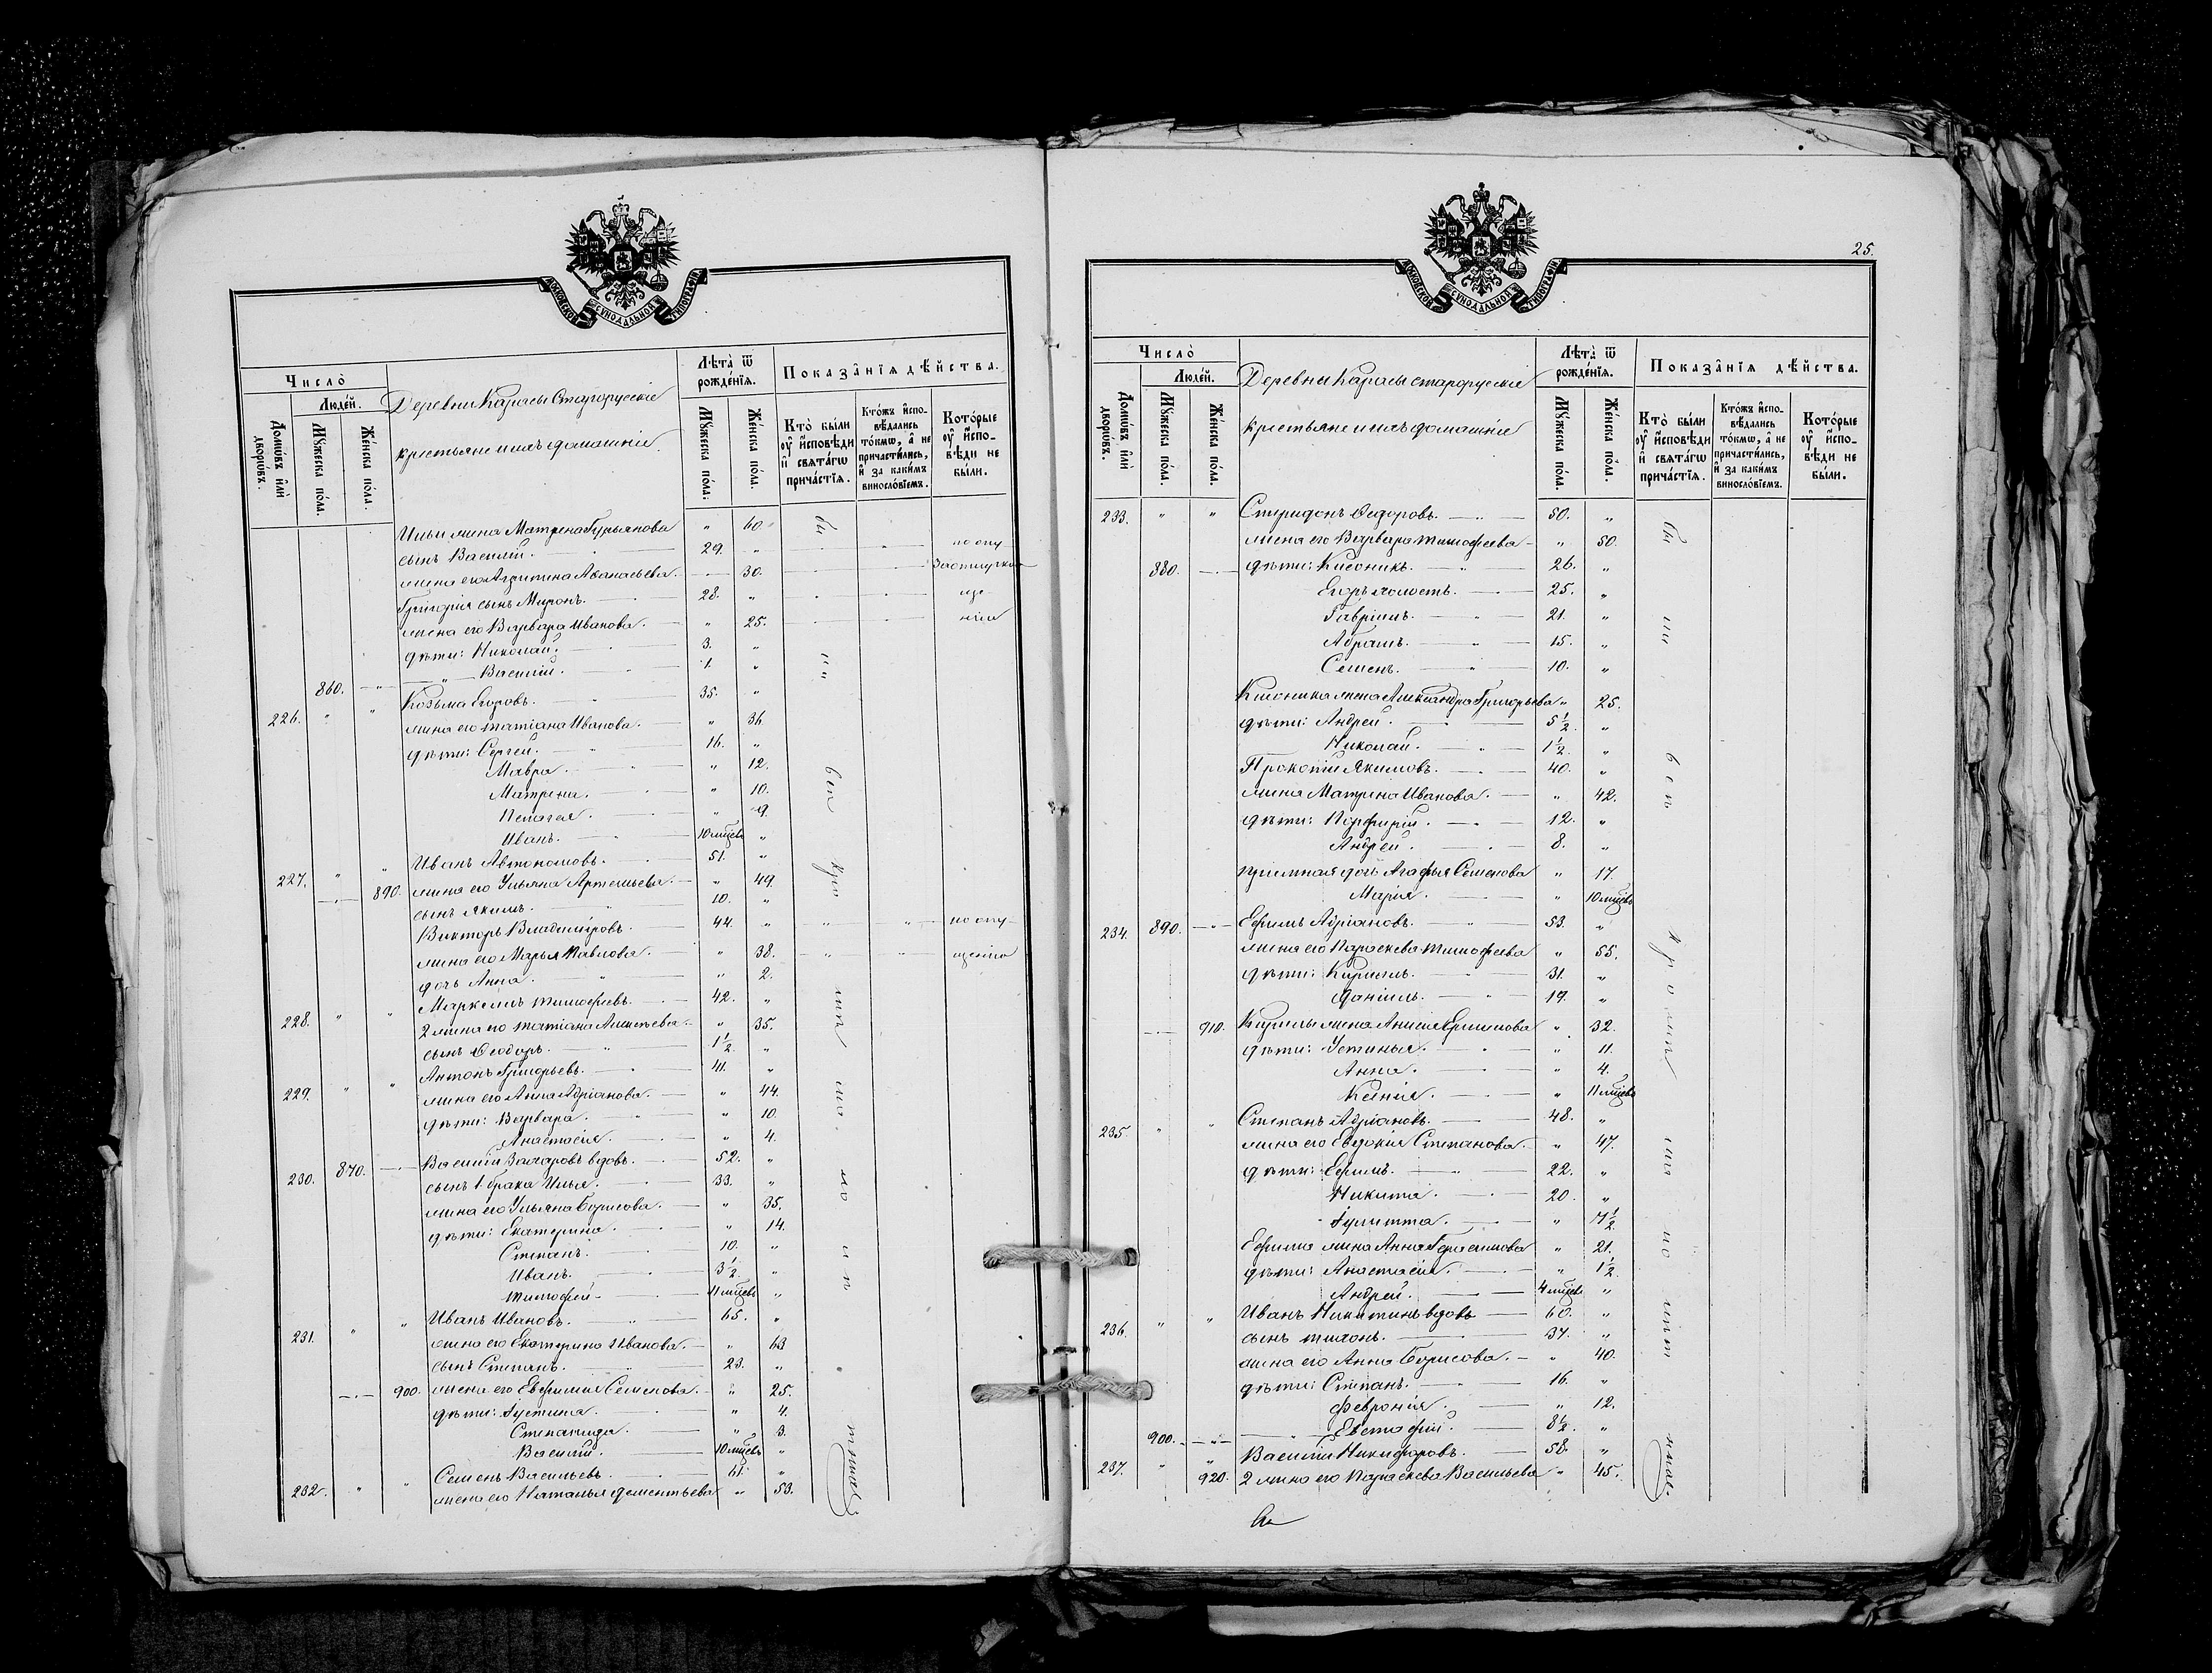 МОСКОВСКОЙ СУНОДАЛЬНОЙ ТИПОГРАФІИ
Число̀
Домѡ́въ и҆лѝ дворѡ́въ.
Люде́й.
Мꙋ́жеска по́ла.
Же́нска по́ла.
Деревни Карасы Старорусскіе
крестьяне и ихъ домашніе.
Лѣта̀ ѿ рожде́нїѧ.
Мꙋ́жеска по́ла.
Же́нска по́ла.
Показа̑нїѧ дѣ́йства.
Кто̀ бы́ли ᲂу҆ и҆́сповѣди и҆ свѧта́гѡ прича́стїѧ.
Кто́жъ и҆спо-вѣ́дались то́кмѡ, а҆ не причасти́лись, и҆ за каки́мъ виносло́вїемъ.
Кото́рые ᲂу҆ и҆́спо-вѣди не бы́ли.
Ильи жена Матрена Гурьянова " 60.
сынъ Василій. 29. " по опу-
жена его Агрипина Аѳанасьева. 30.
Григорія сынъ Миронъ. 28. " ще
жена его Варвара Иванова. " 25. нію
дѣти: Николай. 3. "
860. Василій. 1. "
226. " " Козьма Егоровъ. 35. "
жена его Татіана Иванова. " 36
дѣти: Сергей. 16. "
Мавра. " 12.
Матрена. " 10.
Пелагея. " 9.
Иванъ. 10 мцевъ "
227. " " Иванъ Автономовъ. 51. "
890. жена его Ульяна Артемьева. " 49.
сынъ Якимъ. 10. "
Викторъ Владиміровъ. 44. " по опу-
жена его Марья Павлова. " 38. щенію
дочь Анна. " 2.
228. " " Маркеллъ Тимофеевъ. 42. "
2 жена его Татіана Алексѣева. " 35.
сынъ Ѳеодоръ. 1½. "
229. " " Антонъ Григорьевъ. 41. "
жена его Анна Адріанова. " 44.
дѣти: Варвара. " 10.
Анастасія. " 4.
230. 870. Василій Захаровъ вдовъ. 52. "
сынъ 1. брака Илья. 33. "
жена его Ульяна Борисова. " 35.
дѣти: Екатерина. " 14.
Степанъ. 10. "
Иванъ. 3½. "
Тимофей. 11 мцевъ "
231. " " Иванъ Ивановъ. 65. "
жена его Екатерина Иванова. " 63
сынъ Степанъ. 23. "
900. жена его Евфимія Семенова. " 25.
дѣти: Іустина. " 4.
Степанида. " 3.
Василій. 10 мцевъ "
232. " " Семенъ Васильевъ. 61. "
жена его Наталья Дементьева " 53.
25.
МОСКОВСКОЙ СУНОДАЛЬНОЙ ТИПОГРАФІИ
Число̀
Домѡ́въ и҆лѝ дворѡ́въ.
Люде́й.
Мꙋ́жеска по́ла.
Же́нска по́ла.
Деревни Карасы старорусскіе
крестьяне и ихъ домашніе
Лѣта̀ ѿ рожде́нїѧ.
Мꙋ́жеска по́ла.
Же́нска по́ла.
Показа̑нїѧ дѣ́йства.
Кто̀ бы́ли ᲂу҆ и҆́сповѣди и҆ свѧта́гѡ прича́стїѧ.
Кто́жъ и҆спо-вѣ́дались то́кмѡ, а҆ не причасти́лись, и҆ за каки́мъ виносло́вїемъ.
Кото́рые ᲂу҆ и҆́спо-вѣди не бы́ли.
233. " " Спиридонъ Ѳедоровъ. 50. "
жена его Варвара Тимофеева " 50.
880. дѣти: 26. "
Егоръ холостъ. 25. "
Гавріилъ. 21. "
Абрамъ. 15. "
Семенъ. 10. "
жена Александра Григорьева " 25.
дѣти: Андрей. 5½. "
Николай. 1½. "
Прокопій Якимовъ. 40. "
жена Матрена Иванова. " 42.
дѣти: Порфирій. 12. "
Андрей. 8. "
пріемная дочь Агафья Семенова " 17.
Марія. " 10 мцевъ
234. 890. Ефимъ Адріановъ. 53. "
жена его Параскева Тимофеева " 55.
дѣти: Кириллъ. 31. "
Даніилъ. 19. "
910. Кирилы жена Анисія Ермилова " 32.
дѣти: Устинья. " 11.
Анна. " 4.
Ксенія. " 11 мцевъ
235. " " Степанъ Адріановъ. 48. "
жена его Евдокія Степанова. " 47.
дѣти: Ефимъ. 22. "
Никита. 20. "
Іулитта. " 7½
Ефима жена Анна Герасимова " 21.
дѣти: Анастасія. " 1½
Андрей. 4 мцевъ "
236. " " Иванъ Никитинъ вдовъ 60. "
сынъ Тихонъ. 37. "
жена его Анна Борисова. " 40.
дѣти: Степанъ. 16. "
Февронія. " 12.
900. Евстафій. 8½. "
237. " " Василій Никифоровъ. 58. "
920. 2 жена его Параскева Васильева " 45.